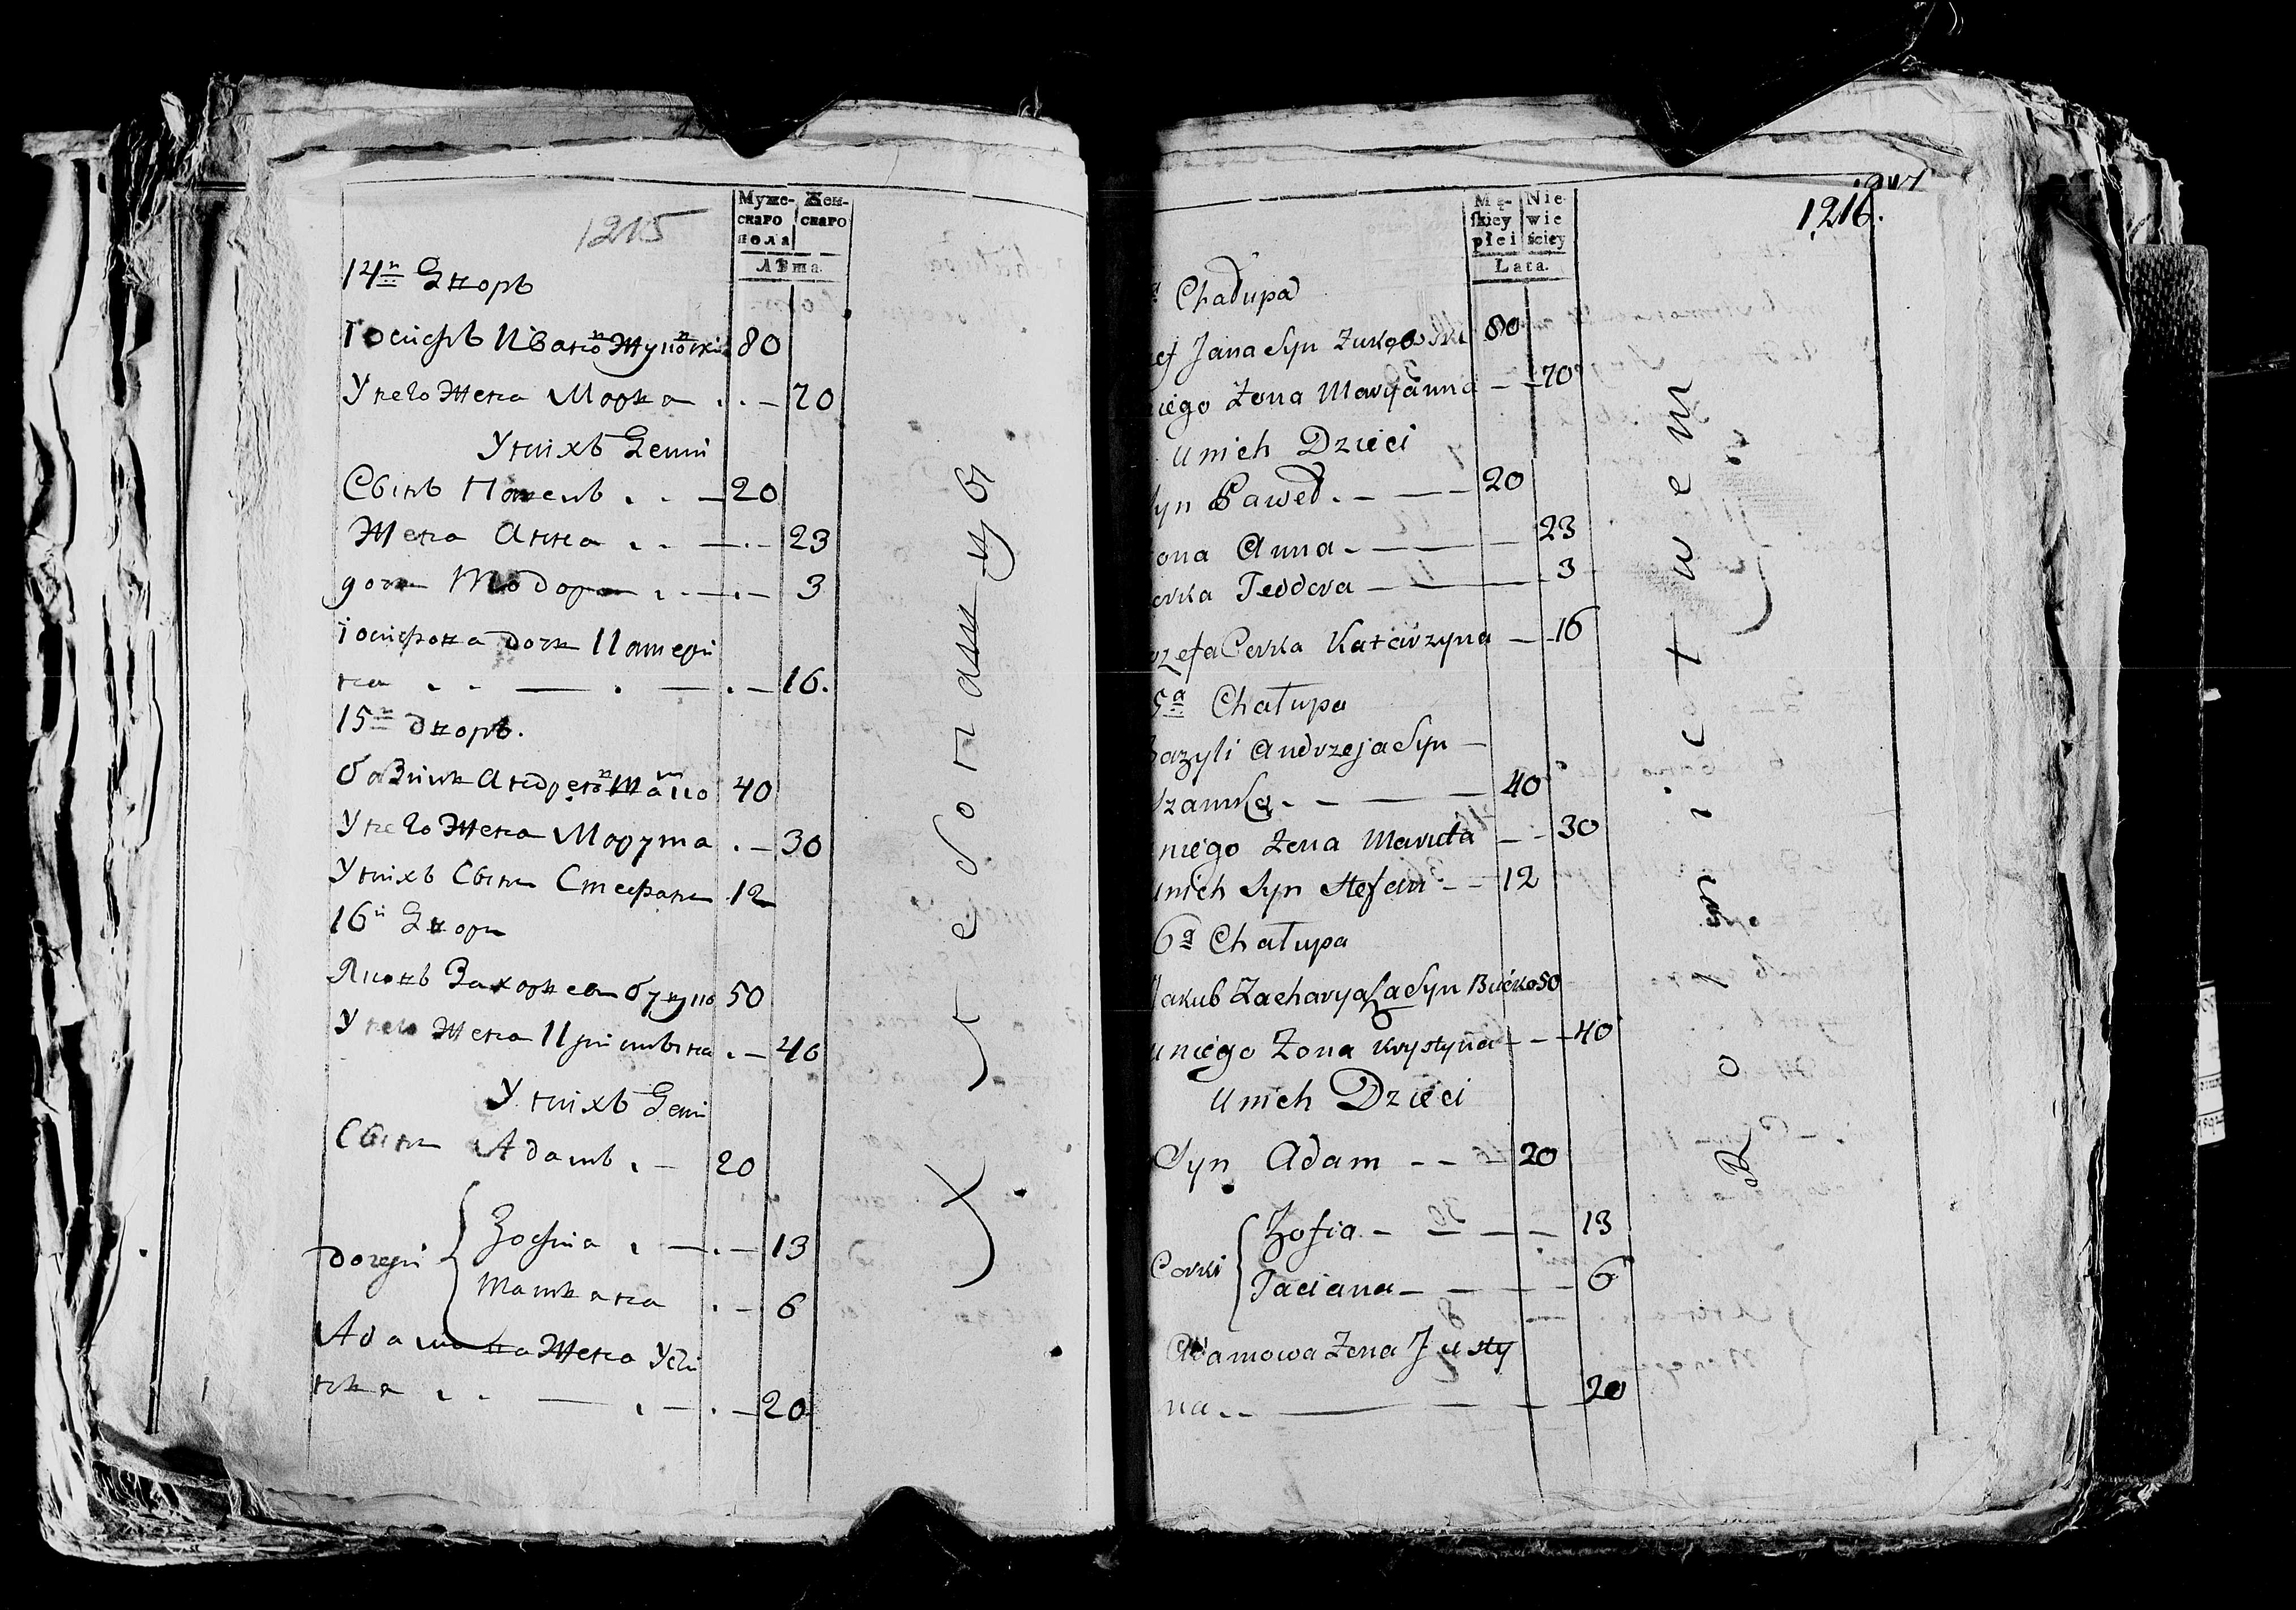 1215
Муже-
скаго
пола
Жен-
скаго
Лѣта.
14й Дворъ
Іосифъ Ивановъ Жуковскій 80
У него Жена Марья . . — 70
У нихъ Дети
Сынъ Павелъ . . — 20
Жена Анна . . — . — 23
дочь Тодора . . — . — 3
іосифова дочь Катери
на . . — . — . — 16.
15й дворъ.
базиль Андреевъ 40
У него Жена Марута . — 30
У нихъ Сынъ Стефанъ 12
16й Дворъ
Яковъ Захарьевъ 50
У него Жена Кристына . — 40
У нихъ Дети
Сынъ Адамъ . — 20
дочери { Зофия . — . — 13
Татьяна . — 6
Адамова Жена Усти
нья . . — . — . — 20
1216.
Mę-
skiey
płci
Nie-
wie
ściey
Lata.
Chałupa
ef Jana Syn Żukowski 80
iego Żona Maryanna — — 70
u nich Dzieci
yn Paweł . — — — 20
ona Anna — — — — 23
orka Teodora — — — 3
ozefa Corka Katarzyna — — 16
5a Chałupa
Bazyli Andrzeja Syn —
. — — — 40
niego Żona Maruta — — 30
u nich Syn Stefan — — 12
6a Chałupa
Jakub Zacharyasza Syn 50
u niego Żona Krystyna — — — 40
u nich Dzieci
Syn Adam — — — 20
Corki { Zofia — — — — 13
Taciana — — — — 6
Adamowa Żona Justy
na . . — — — — 20